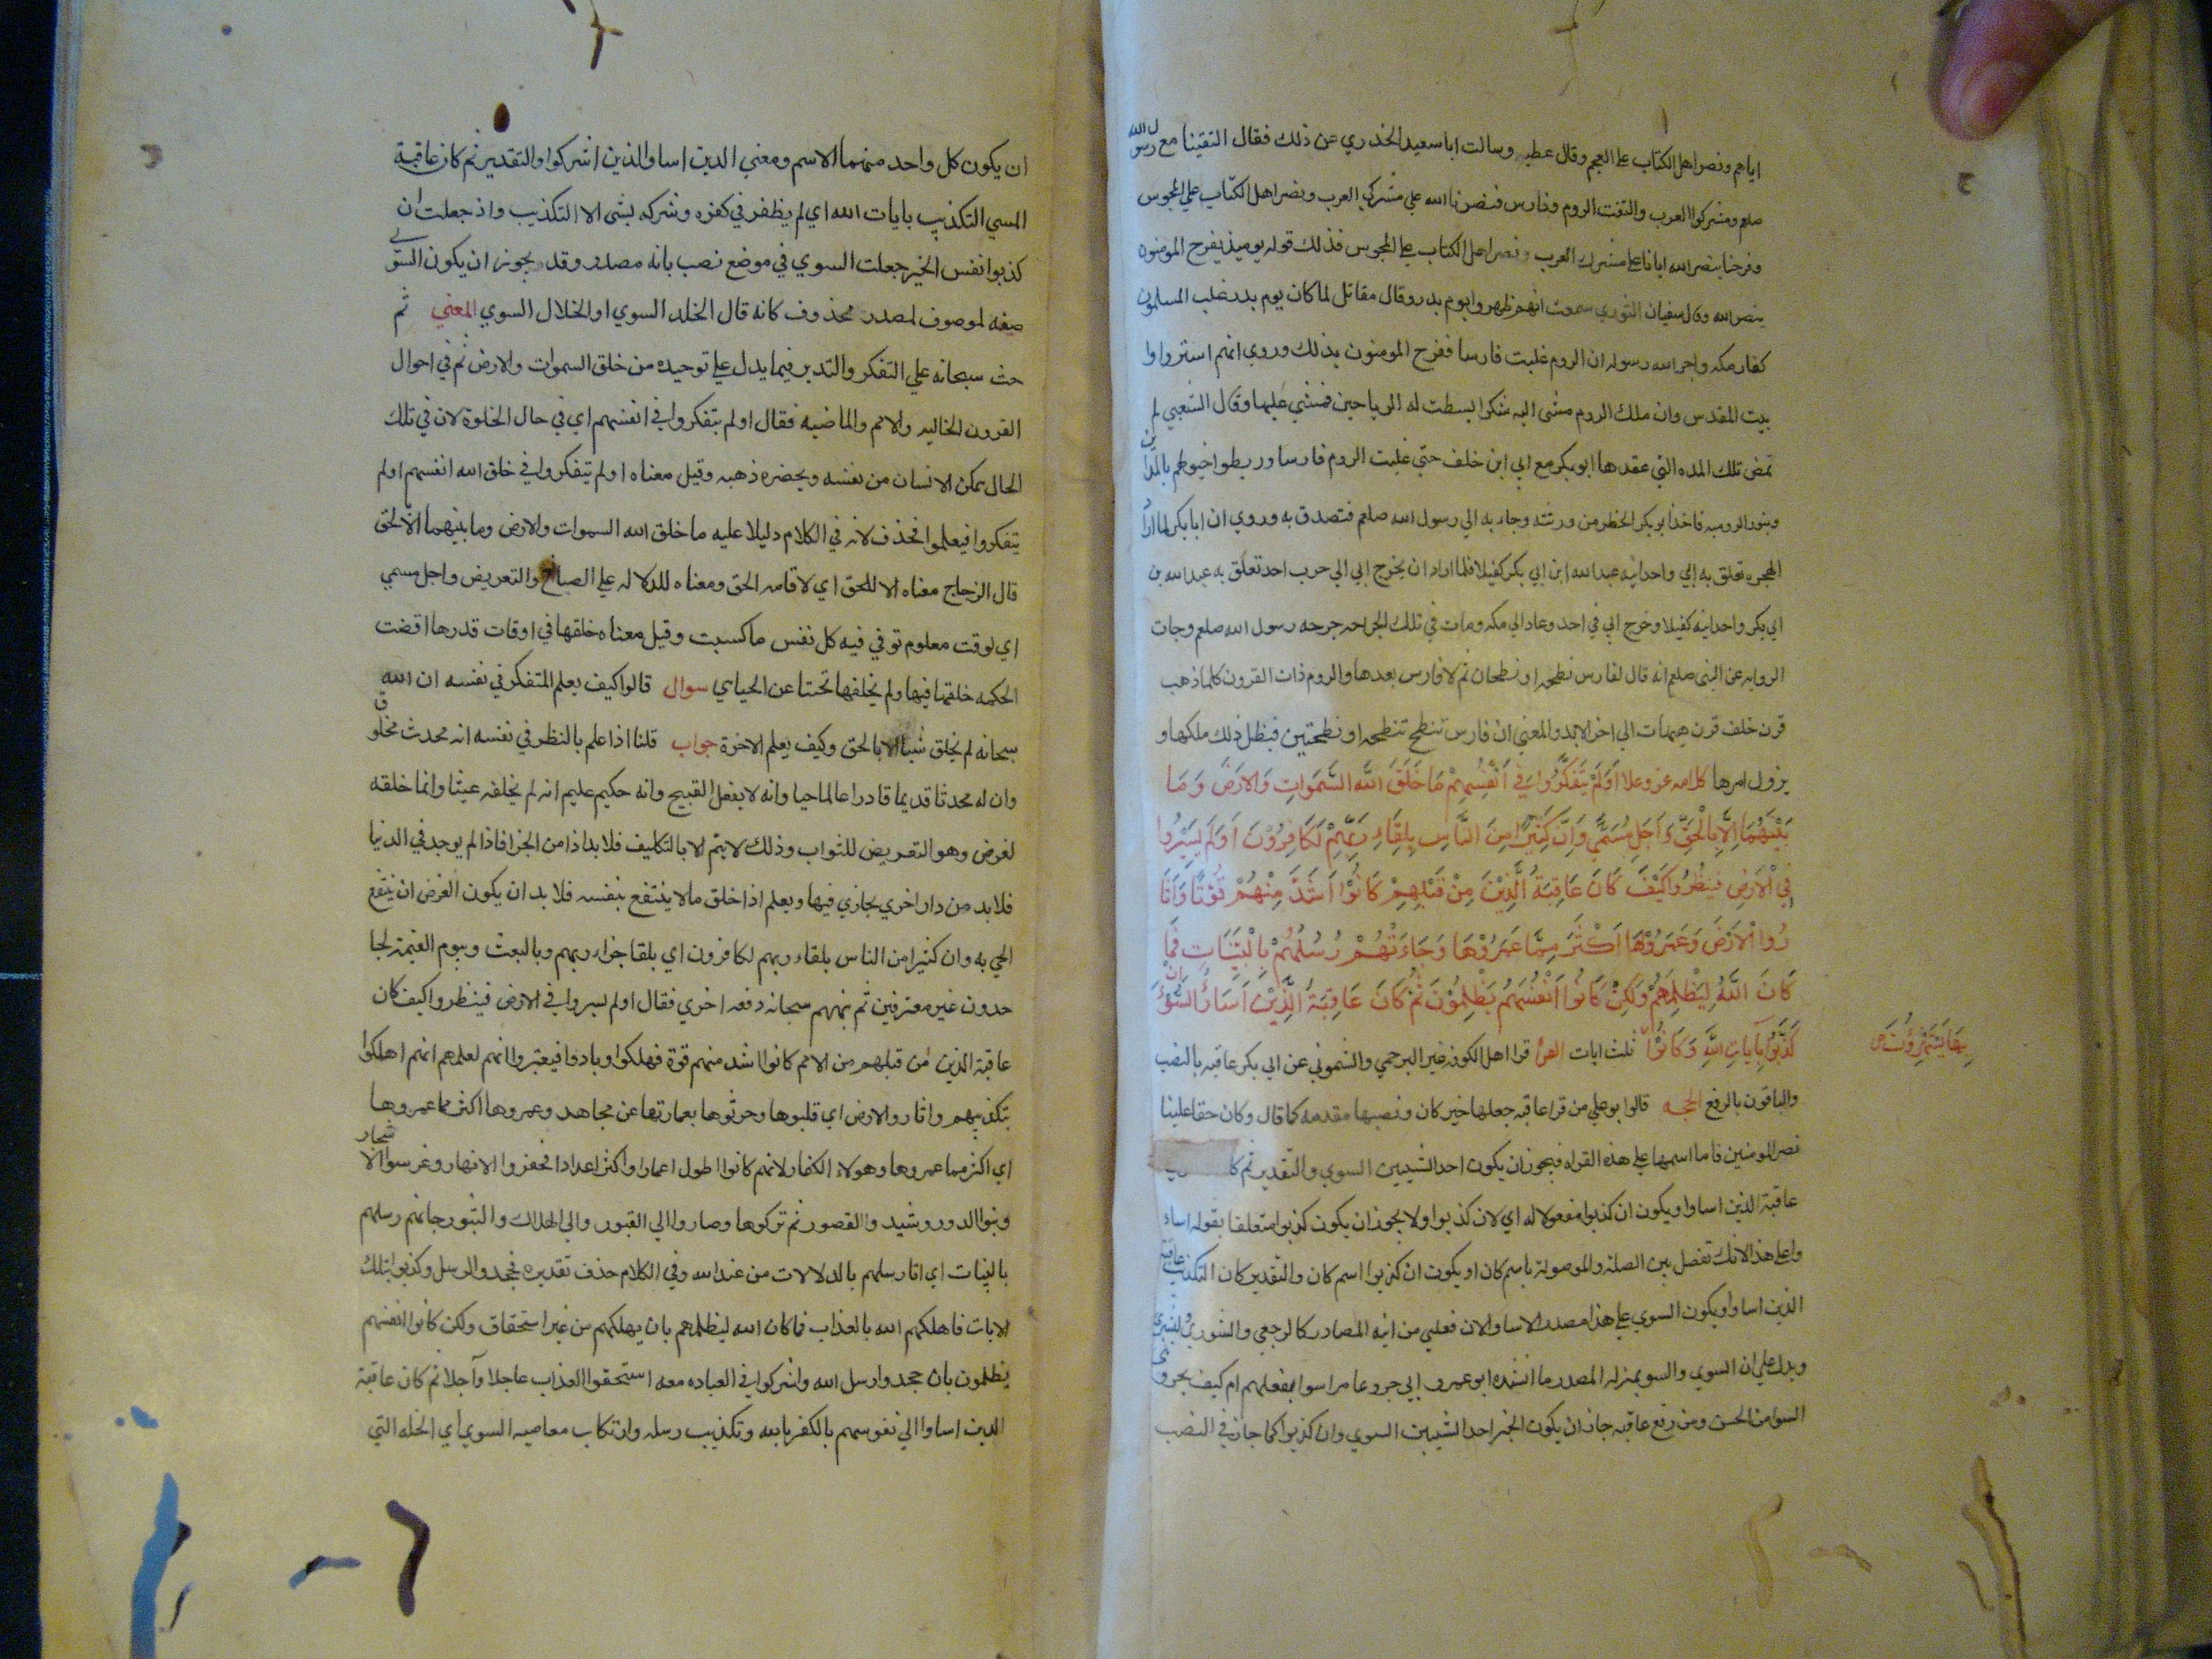 اياهم ونصر اهل الكتاب علي العجم وقال عطيه وسالت ابا سعيد الخدري عن ذلك فقال التقينا مع رسول الله
صلعم ومشركوا العرب والتقت الروم وفارس فنصرنا الله علي مشركي العرب ونصر اهل الكتاب علي المجوس
وفرحنا بنصر الله ايانا علي مشرك العرب ونصر اهل الكتاب علي المجوس فذلك قوله يوميذ يفرح المومنون
بنصر الله وقال سفيان الثوري سمعت انهم ظهروا يوم بدر وقال مقاتل لما كان يوم بدر غلب المسلمون
كفار مكه واخبر الله رسوله ان الروم غلبت فارسا ففرح المومنون بذلك وروي انهم استردوا
بيت المقدس وان ملك الروم مشي اليه شكرا بسطت له الرياحين فمشي عليها وقال الشعبي لم
تمض تلك المده التي عقدها ابو بكر مع ابي ابن خلف حتي غلبت الروم فارسا وربطوا خيولهم بالمداين
وبنوا الروميه فاخذ ابو بكر الخطر من ورثته وجاء به الي رسول الله صلعم فتصدق به وروي ان ابا بكر لما اراد
الهجره تعلق به ابي واخذ ابنه عبد الله ابن ابي بكر كفيلا فلما اراد ان يخرج ابي الي حرب احد تعلق به عبد الله بن
ابي بكر واخذ ابنه كفيلا وخرج ابي في احد وعاد الي مكه ومات في تلك الجراحه جرحه رسول الله صلعم وجات
الروايه عن النبي صلعم انه قال لفارس نطحه او نطحتان ثم لا فارس بعدها والروم ذات القرون كلما ذهب
قرن خلف قرن هيهات الي اخر الابد والمعني ان فارس تنطح تنطحه او نطحتين فيبطل ذلك ملكها و
يزول امرها كلامه عز وعلا اَوَلَمْ يَتَفَكَّرُوا فِي اَنْفُسِهِمْ مَا خَلَقَ اللَّهُ السَّمَوَاتِ وَالاَرْضَ وَمَا
بَيْنَهُمَا اِلَّا بِالْحَقِّ وَاَجَلٍ مُسَمًّي وَاِنَّ كَثِيرًا مِنَ النَّاسِ بِلِقَاءِ رَبِّهِمْ لَكَافِرُوْنَ اَوَلَمْ يَسِيْرُوا
فِي الْاَرْضِ فَيَنْظُرُوا كَيْفَ كَانَ عَاقِبَةُ الَّذِيْنَ مِنْ قَبْلِهِمْ كَانُوْا اَشَدَّ مِنْهُمْ قُوَّتًا وَاَثَا
رُوا الْاَرْضَ وَعَمَرُوْهَا اَكْثَرَ مِمَّا عَمَرُوْهَا وَجَاءَتْهُمْ رُسُلُهُمْ بِالْبَيِّنَاتِ فَمَا
كَانَ اللَّهُ لِيَظْلِمَهُمْ وَلَكِنْ كَانُوا اَنْفُسَهُمْ يَظْلِمُوْنَ ثُمَّ كَانَ عَاقِبَةُ الَّذِيْنَ اَسَاءُوا السُّوْءَي اَنْ
كَذَّبُوا بِآيَاتِ اللَّهِ وَكَانُوْا ثلث ايات القرأ قرا اهل الكوفه غير البرجمي والشموني عن ابي بكر عاقبه بالنصب
بِهَا يَسْتَهْزِؤُنَ
والباقون بالرفع الحجه قال ابو علي من قرا عاقبه جعلها خبر كان ونصبها مقدمه كما قال وكان حقا علينا
نصر المومنين فاما اسمها علي هذه القراه فيجوز ان يكون احد الشييين السوي والتقدير ثم كا
عاقبة الذين اساوا ويكون ان كذبوا مفعولا له اي لان كذبوا ولا يجوز ان يكون كذبوا متعلقا بقوله اساء
وا علي هذا لانك تفصل بين الصله والموصول باسم كان او يكون ان كذبوا اسم كان والتقدير كان التكذيب عاقبة
الذين اساوا ويكون السوي علي هذا مصدر لاساوا لان فعلي من ابنيه المصادر كالرجعي والشوري والبشري
ويدل علي ان السوي والسو بمنزله المصدر ما انشده ابو عمرو اني جزوا عامرا سوا بفعلهم ام كيف يجزونني
السوا من الحسن ومن رفع عاقبه جاز ان يكون الخبر احد الشييين السوي وان كذبوا كما جاز في النصب
ان يكون كل واحد منهما الاسم ومعني الذين اساوا الذين اشركوا والتقدير ثم كان عاقبة
المسي التكذيب بايات الله اي لم يظفر في كفره وشركه بشي الا التكذيب واذ جعلت ان
كذبوا نفس الخبر جعلت السوي في موضع نصب بانه مصدر وقد يجوز ان يكون السوي
صفه لموصوف لمصدر محذوف كانه قال الخله السوي او الخلال السوي المعني ثم
حث سبحانه علي التفكر والتدبر فيما يدل علي توحيده من خلق السموات والارض ثم في احوال
القرون الخاليه والامم والماضيه فقال اولم يتفكروا في انفسهم اي في حال الخلوة لان في تلك
الحال يمكن الانسان من نفسه ويحضره ذهبه وقيل معناه اولم يتفكروا في خلق الله انفسهم اولم
يتفكروا فيعلموا فحذف لان في الكلام دليلا عليه ما خلق الله السموات والارض وما بينهما الا بالحق
قال الزجاج معناه الا للحق اي لاقامه الحق ومعناه للدلاله علي الصانع والتعريض واجل مسمي
اي لوقت معلوم توفي فيه كل نفس ما كسبت وقيل معناه خلقها في اوقات قدرها اقضت
الحكمه خلقها فيها ولم يخلفها عن سوال قالوا كيف يعلم المتفكر في نفسه ان الله
سبحانه لم يخلق شيا الا بالحق وكيف يعلم الاخرة جواب قلنا اذا علم بالنظر في نفسه انه محدث مخلوق
وان له محدثا قديما قادرا عالما حيا وانه لا يفعل القبيح وانه حكيم عليم انه لم يخلقه عبثا وانما خلقه
لغرض وهو التعريض للثواب وذلك لا يتم الا بالتكليف فلا بد اذا من الجزا فاذا لم يوجد في الدنيا
فلا بد من دار اخري يجازي فيها ويعلم اذا خلق ما لا ينتفع بنفسه فلا بد ان يكون الغرض ان ينتفع
الحي به وان كثيرا من الناس بلقاء ربهم لكافرون اي بلقا جزاء ربهم وبالبعث ويوم القيمه لجا
حدون غير معترفين ثم نبههم سبحانه دفعه اخري فقال اولم يسيروا في الارض فينظروا كيف كان
عاقبة الذين من قبلهم من الامم كانوا اشد منهم قوة فهلكوا وبادوا فيعتبروا انهم لعلمهم انهم اهلكوا
بتكذيبهم واثاروا الارض اي قلبوها وحرثوها بعمارتها عن مجاهد وعمروها اكثر مما عمروها
اي اكثر مما عمروها وهولاء الكفار لانهم كانوا اطول اعمارا واكثر اعدادا فحفروا الانهار وغرسوا الاشجار
وبنوا الدور وشيدوا القصور ثم تركوها وصاروا الي القبور والي الهلاك والثبور جاتهم رسلهم
بالبينات اي اتا رسلهم بالدلالات من عند الله وفي الكلام حذف تقديره فجحدوا الرسل وكذبوا بتلك
الايات فاهلكهم الله بالعذاب فما كان الله ليظلمهم بان يهلكهم من غير استحقاق ولكن كانوا انفسهم
يظلمون بان جحدوا رسل الله واشركوا في العباده معه استحقوا العذاب عاجلا وآجلا ثم كان عاقبة
الذين اساوا الي نفوسهم بالكفر بالله وتكذيب رسله وارتكاب معاصيه السوي اي الخله التي